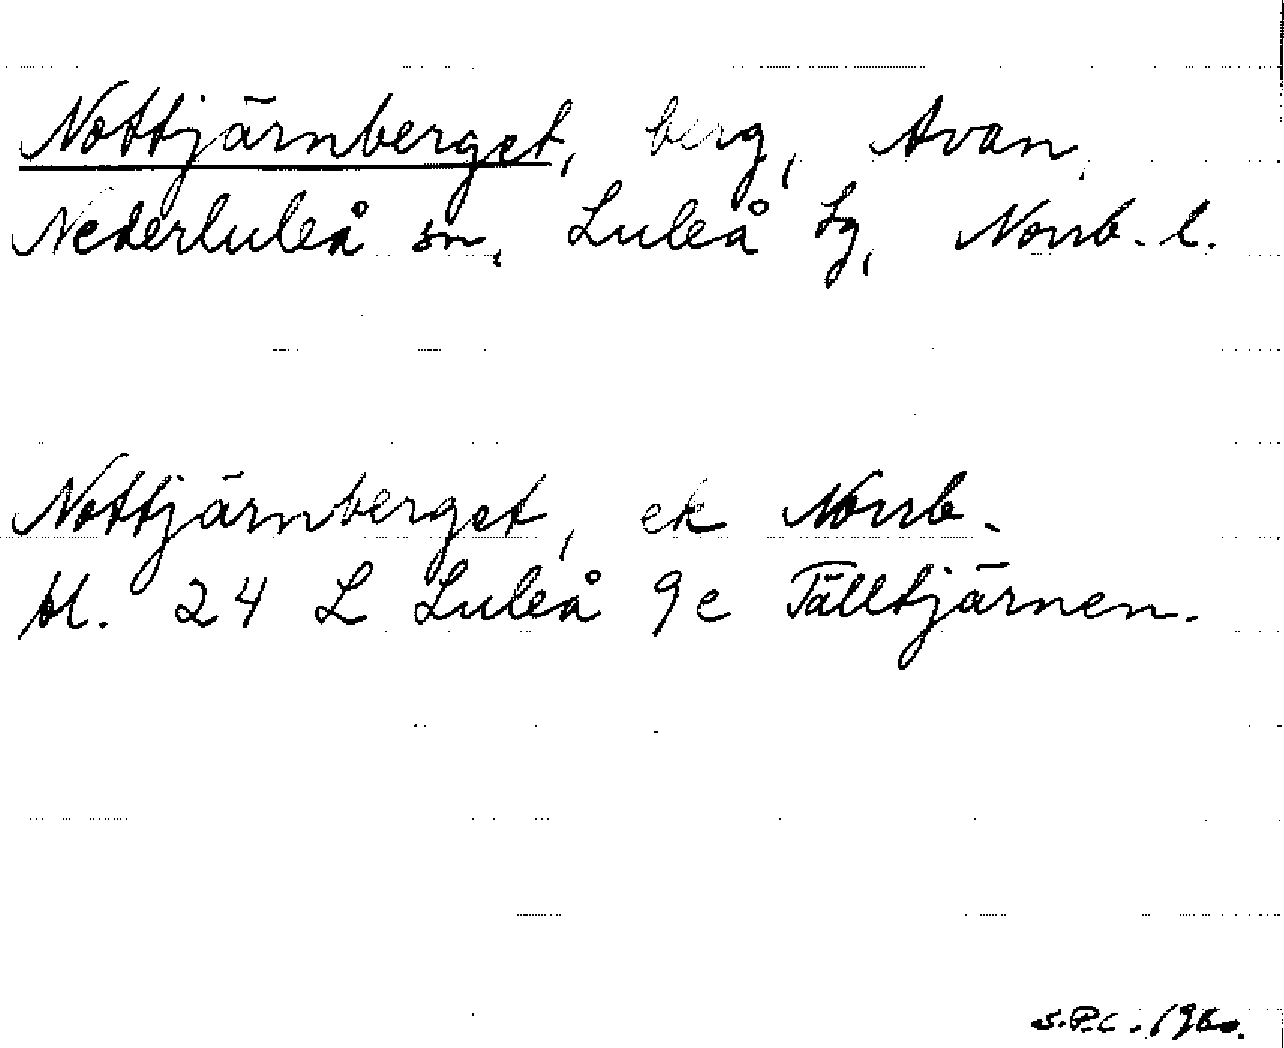 Nottjärnberget, berg, Avan,
Nederluleå sn, Luleå tg, Norrb. l.
Nottjärnberget, ek Norrb.
bl. 24 L Luleå 9c Tälltjärnen.
S.P.C. 1960.